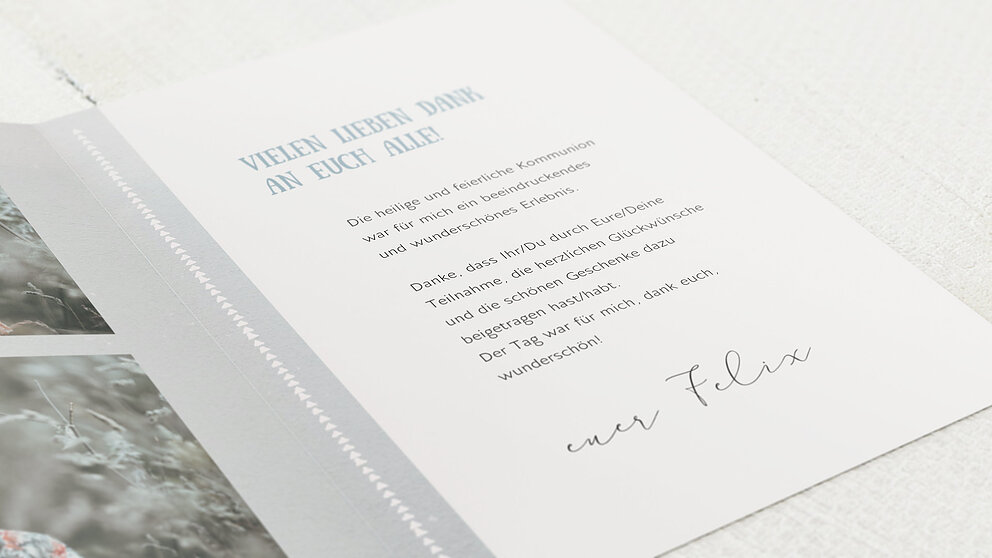 VIELEN LIEBEN DANK
AN EUCH ALLE!
Die heilige und feierliche Kommunion
war für mich ein beeindruckendes
und wunderschönes Erlebnis.
Danke, dass Ihr/Du durch Eure/Deine
Teilnahme, die herzlichen Glückwünsche
und die schönen Geschenke dazu
beigetragen hast/habt.
Der Tag war für mich, dank euch,
wunderschön!
euer Felix